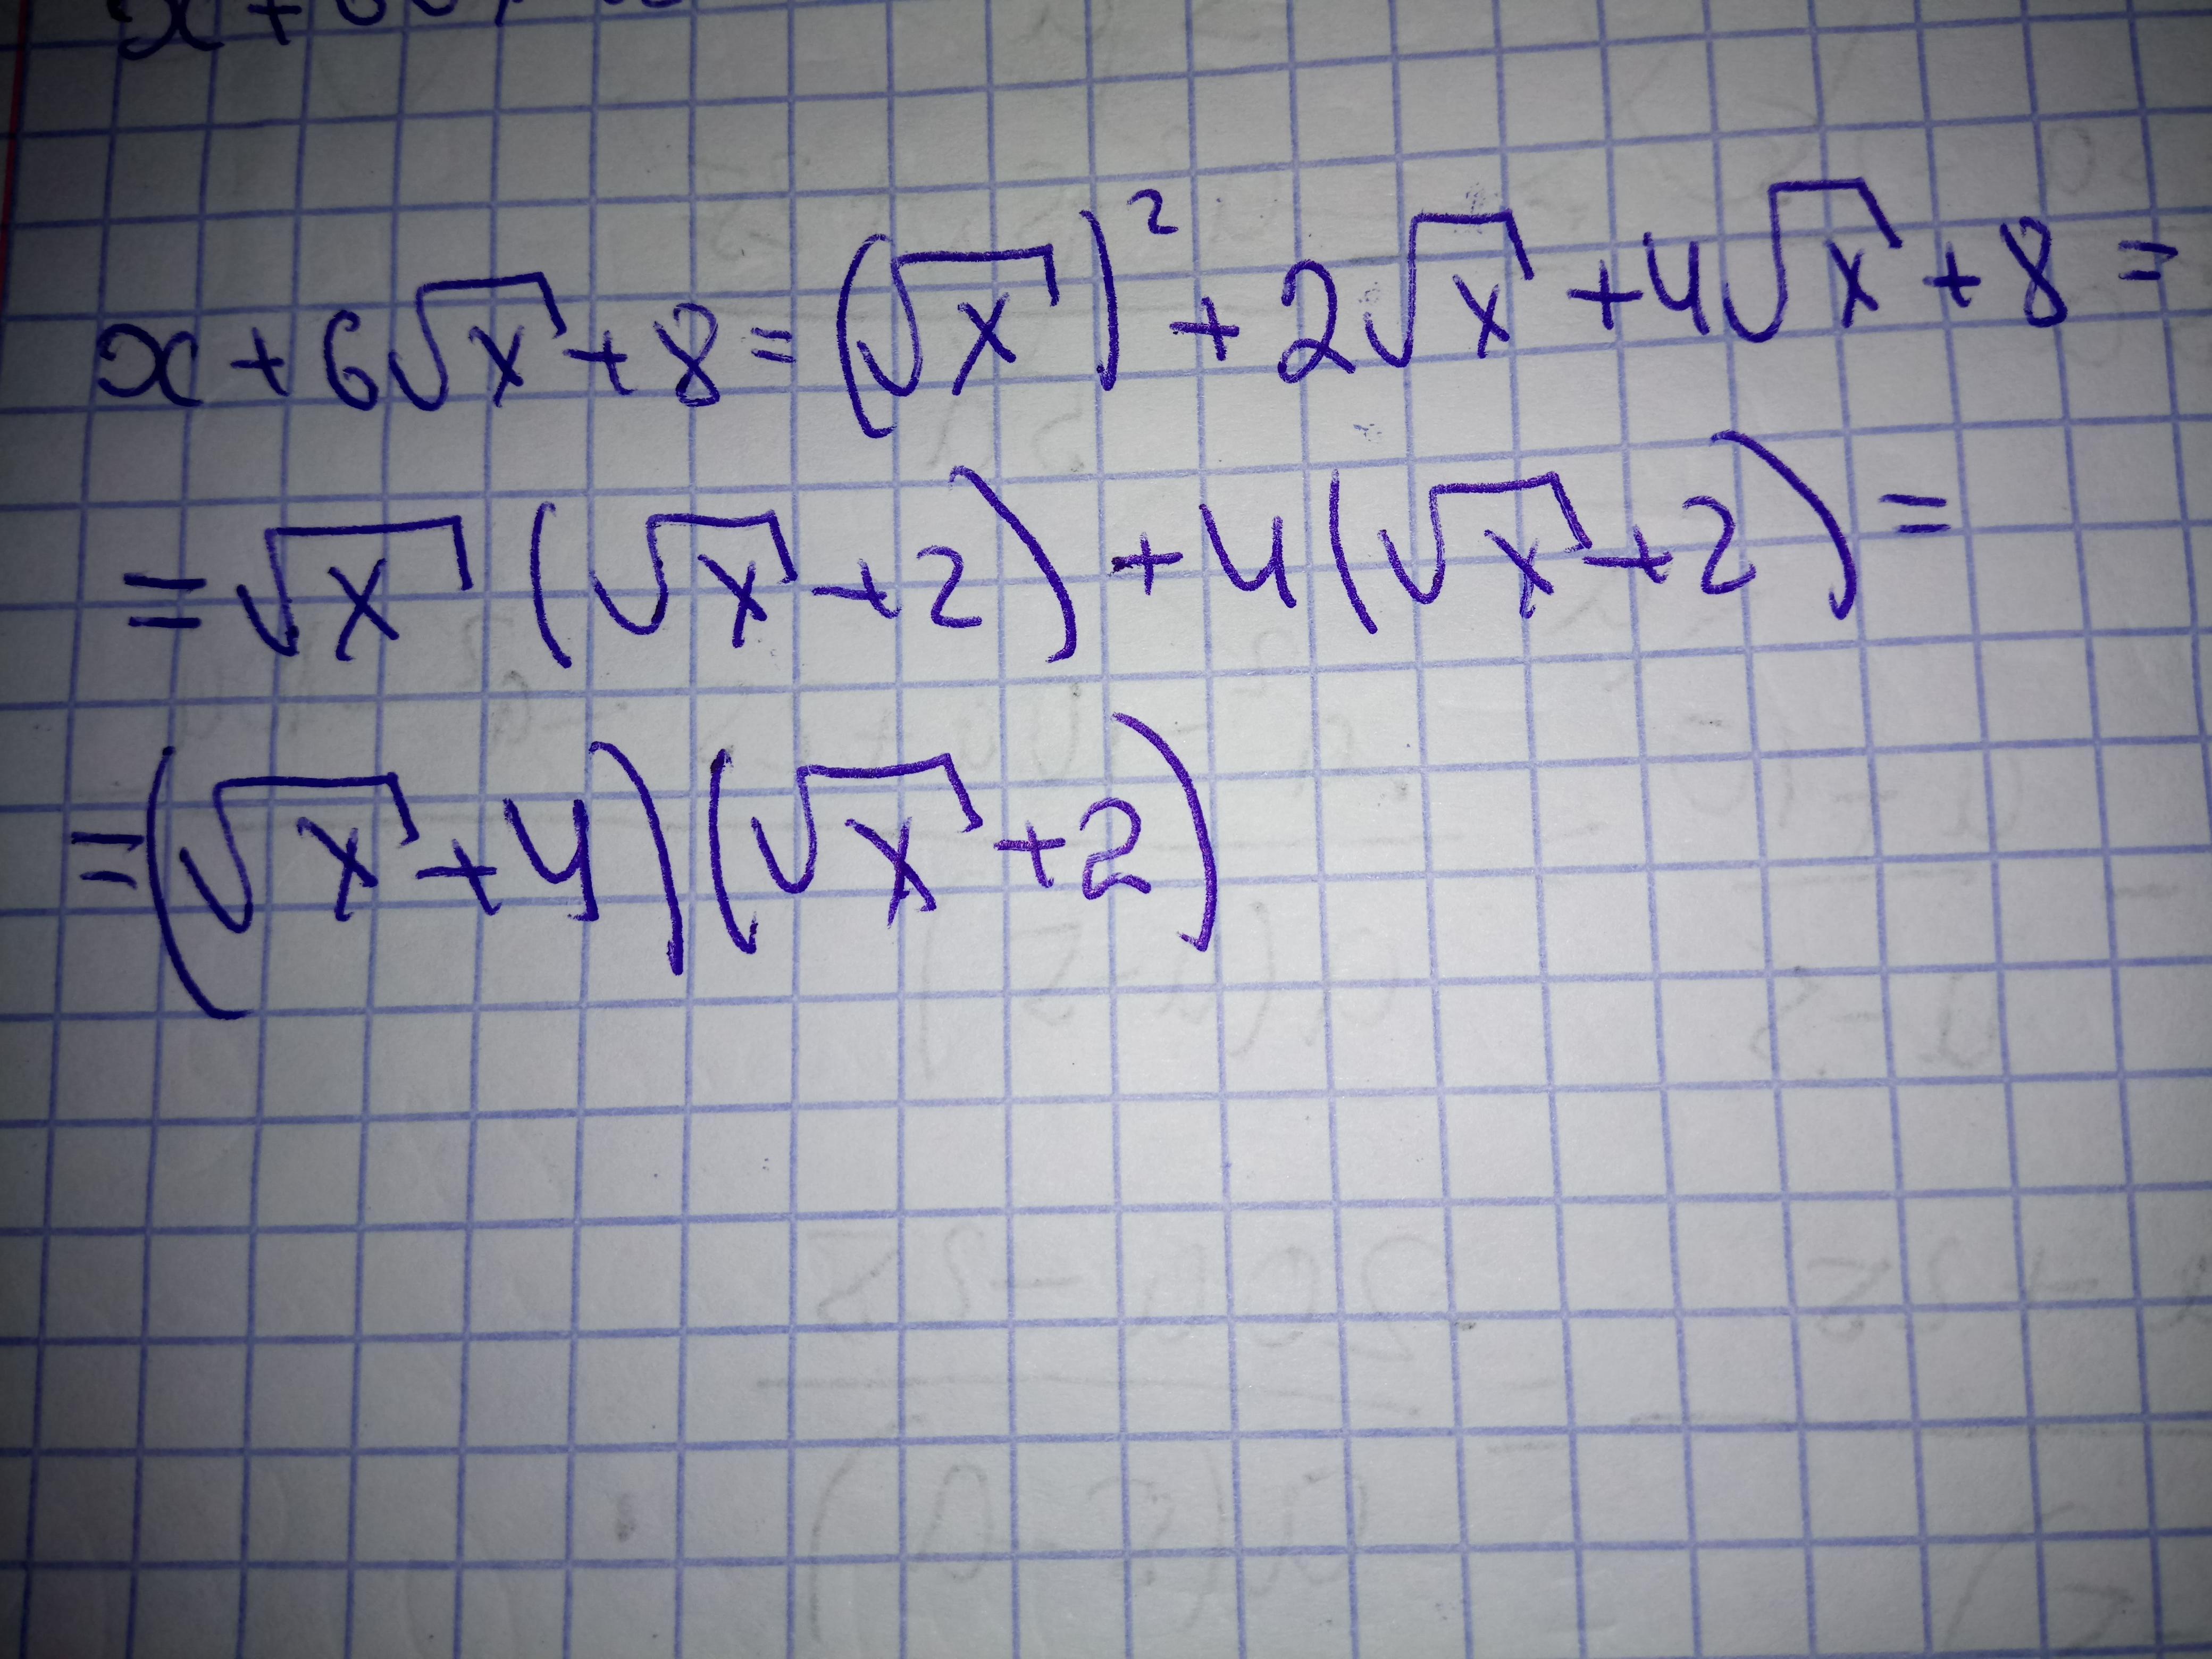 x + 6√x + 8 = (√x)² + 2√x + 4√x + 8 =
= √x (√x + 2) + 4(√x + 2) =
= (√x + 4)(√x + 2)